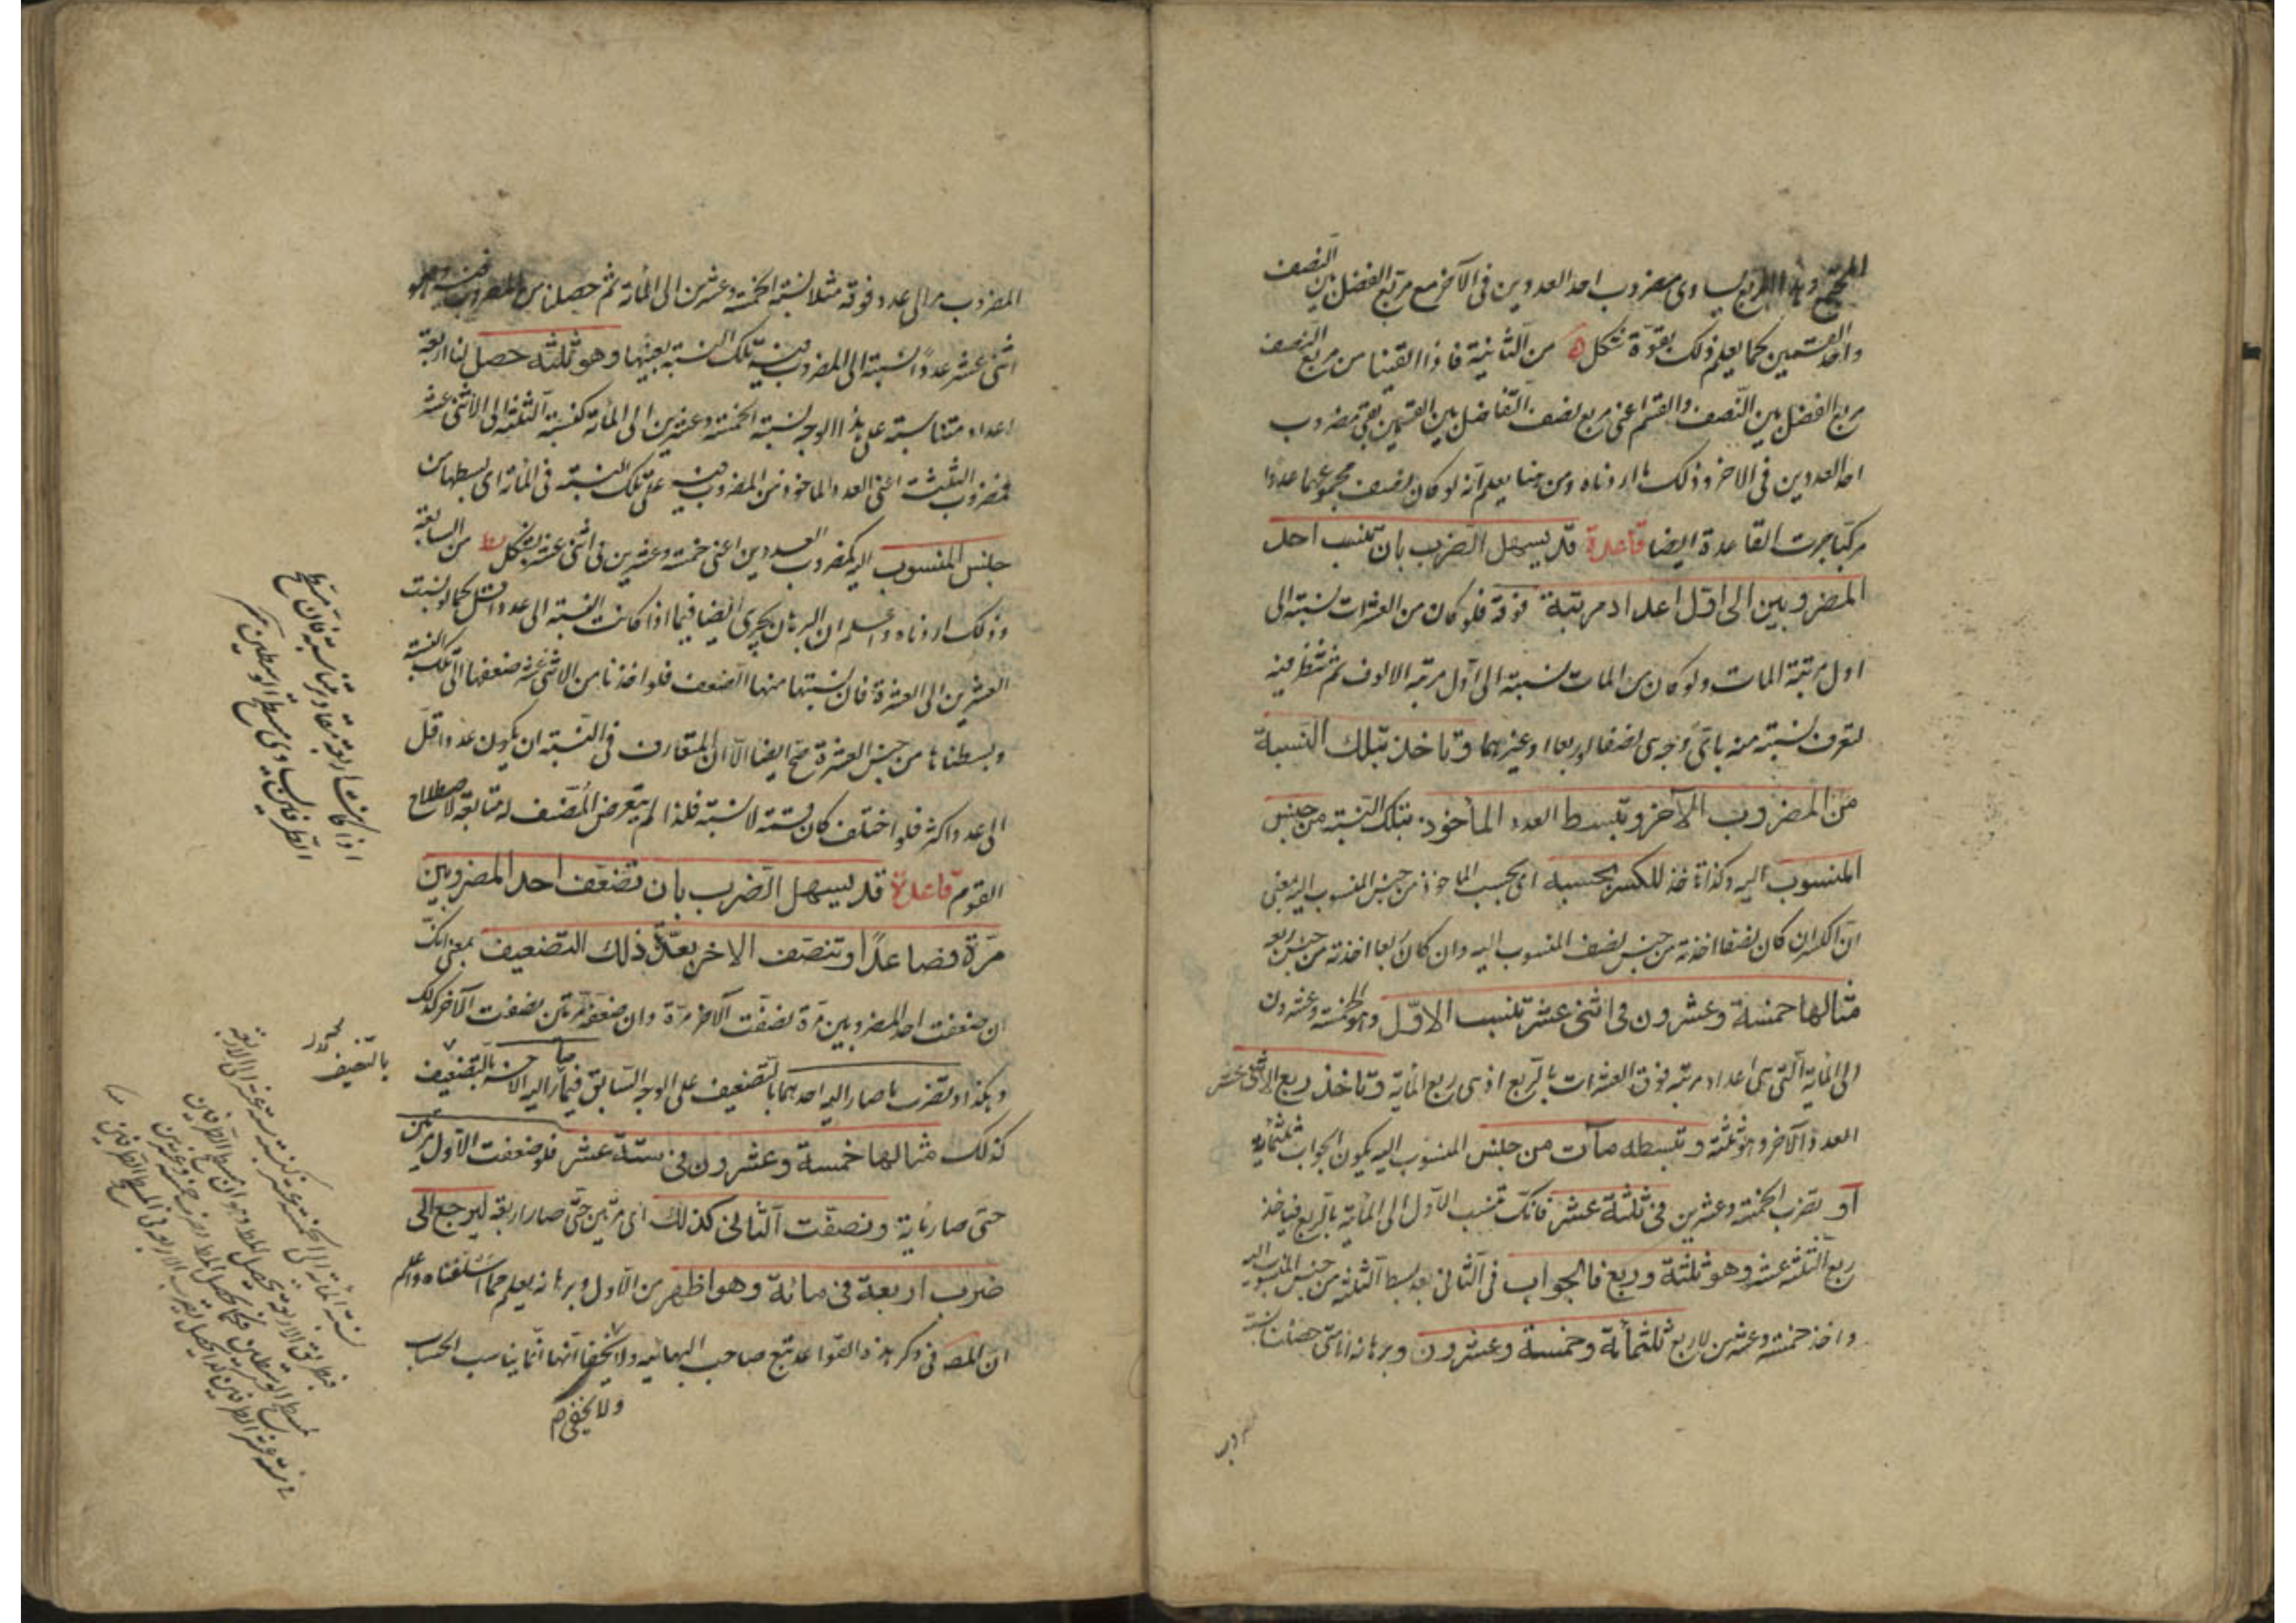 المربع يساوى مضروب احد العددين فى الآخر مع مربع الفضل بين النصف
واحد القسمين كما يعلم ذلك بقوة شكل ه من الثانية فاذا القينا من مربع النصف
مربع الفضل بين النصف والقسم اعنى مربع نصف التفاضل بين القسمين بقى مضروب
احد العددين فى الاخر وذلك ما اردناه ومن هنا يعلم انه لو كان نصف مجموعهما عددا
مركبا جرت القاعدة ايضا قاعدة قد يسهل الضرب بان تنسب احد
المضروبين الى اول اعداد مرتبة فوقه فلو كان من العشرات نسبته الى
اول مرتبة المات ولو كان من المات نسبته الى اول مرتبة الالوف ثم تنظر فيه
لتعرف نسبته منه باى وجه هى انصفا او ربعا او غيرهما وتاخذ بتلك النسبة
من المضروب الآخر وتبسط العدد المأخوذ بتلك النسبة من جنس
المنسوب اليه وكذا تاخذ للكسر بحسبه اى بحسب الماخوذ من جنس المنسوب اليه يعنى
ان الكسر ان كان نصفا اخذته من جنس نصف المنسوب اليه وان كان ربعا اخذته من جنس ربعه
مثالها خمسة وعشرون فى اثنى عشر تنسب الاول وهو الخمسة وعشرون
الى المائة التى هى اعداد مرتبة فوق العشرات بالربع اذ هى ربع المائة وتاخذ ربع الاثنى عشر
العدد الآخر وهو ثلثة وتبسطه مآت من جنس المنسوب اليه يكون الجواب ثلثمائة
او تضرب الخمسة وعشرين فى ثلثة عشر فانك تنسب الاول الى المائة بالربع فياخذ
ربع الثلثة عشر وهو ثلثة وربع فالجواب فى الثانى بعد بسط الثلثة من جنس المنسوب اليه
واخذ خمسة وعشرين للربع ثلثمأة وخمسة وعشرون وبرهانه انا متى حصلنا نسبة
المضروب
المضروب الى عدد فوقه مثلا نسبة الخمسة وعشرين الى المأة ثم حصلنا من المضروب فيه وهو
اثنى عشر عددا نسبته الى المضروب فيه تلك النسبة بعينها وهو ثلثة حصل لنا اربعة
اعداد متناسبة على هذا الوجه نسبة الخمسة وعشرين الى المأة كنسبة الثلثة الى الاثنى عشر
فمضروب الثلثة اعنى العدد الماخوذ من المضروب فيه على تلك النسبة فى المأة اى بسطها من
جنس المنسوب اليه كمضروب العددين اعنى خمسة وعشرين فى اثنى عشر بشكل يط من السابعة
وذلك ما اردناه واعلم ان البرهان يجرى ايضا فيما اذا كانت النسبة الى عدد اقل كما لو نسبت
العشرين الى العشرة فان نسبتها منها الضعف فلو اخذنا من الاثنى عشر ضعفها الى تلك النسبة
وبسطناها من جنس العشرة صح ايضا الا ان المتعارف فى النسبة ان يكون عددا اقل
الى عدد اكثر فلو اختلف كان قسمة لا نسبة فلذا لم يتعرض المصنف له متابعة لاصطلاح
القوم قاعدة قد يسهل الضرب بان تضعف احد المضروبين
مرة فصاعدا وتنصف الاخر بعدة ذلك التضعيف بمعنى انك
ان ضعفت احد المضروبين مرة نصفت الآخر مرة وان ضعفته مرتين نصفت الآخر كذلك
وهكذا وتضرب ما صار اليه احدهما بالتضعيف على الوجه السابق فيما صار اليه الاخر بالتضعيف
كذلك مثالها خمسة وعشرون فى ستة عشر فلو ضعفت الاول مرتين
حتى صار مأية ونصفت الثانى كذلك اى مرتين حتى صار اربعة ليرجع الى
ضرب اربعة فى مائة وهو اظهر من الاول وبرهانه يعلم مما اسلفناه واعلم
ان المصـ فى ذكر هذه القواعد تبع صاحب البهائيه ولا يخفا انها انما يناسب الحساب
ولا يخفى م
اذا كانت اربعة مقادير متناسبة فان مسطح
الطرفين يساوى مسطح الوسطين
بالتنصيف